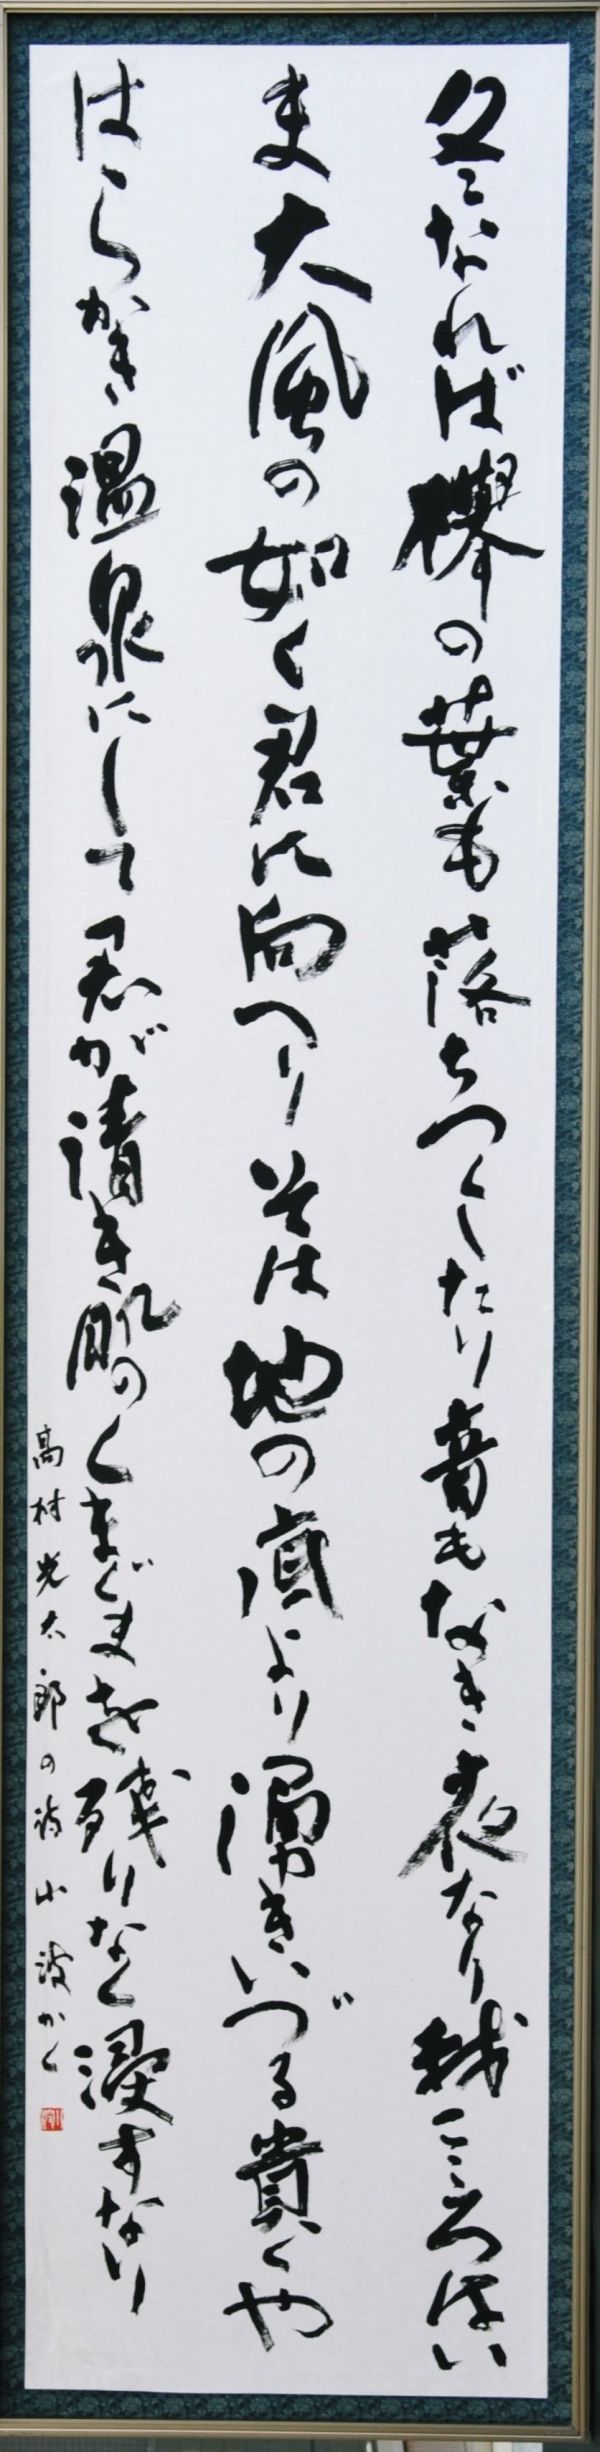 冬になれば欅の葉も落ちつくしたり音もなき夜なり我こころはい
ま大風の如く君に向へりそは地の底より湧きいづる貴くや
はらかき温泉にして君が清き肌のくまぐまを残りなく浸すなり
高村光太郎の詩 小波かく